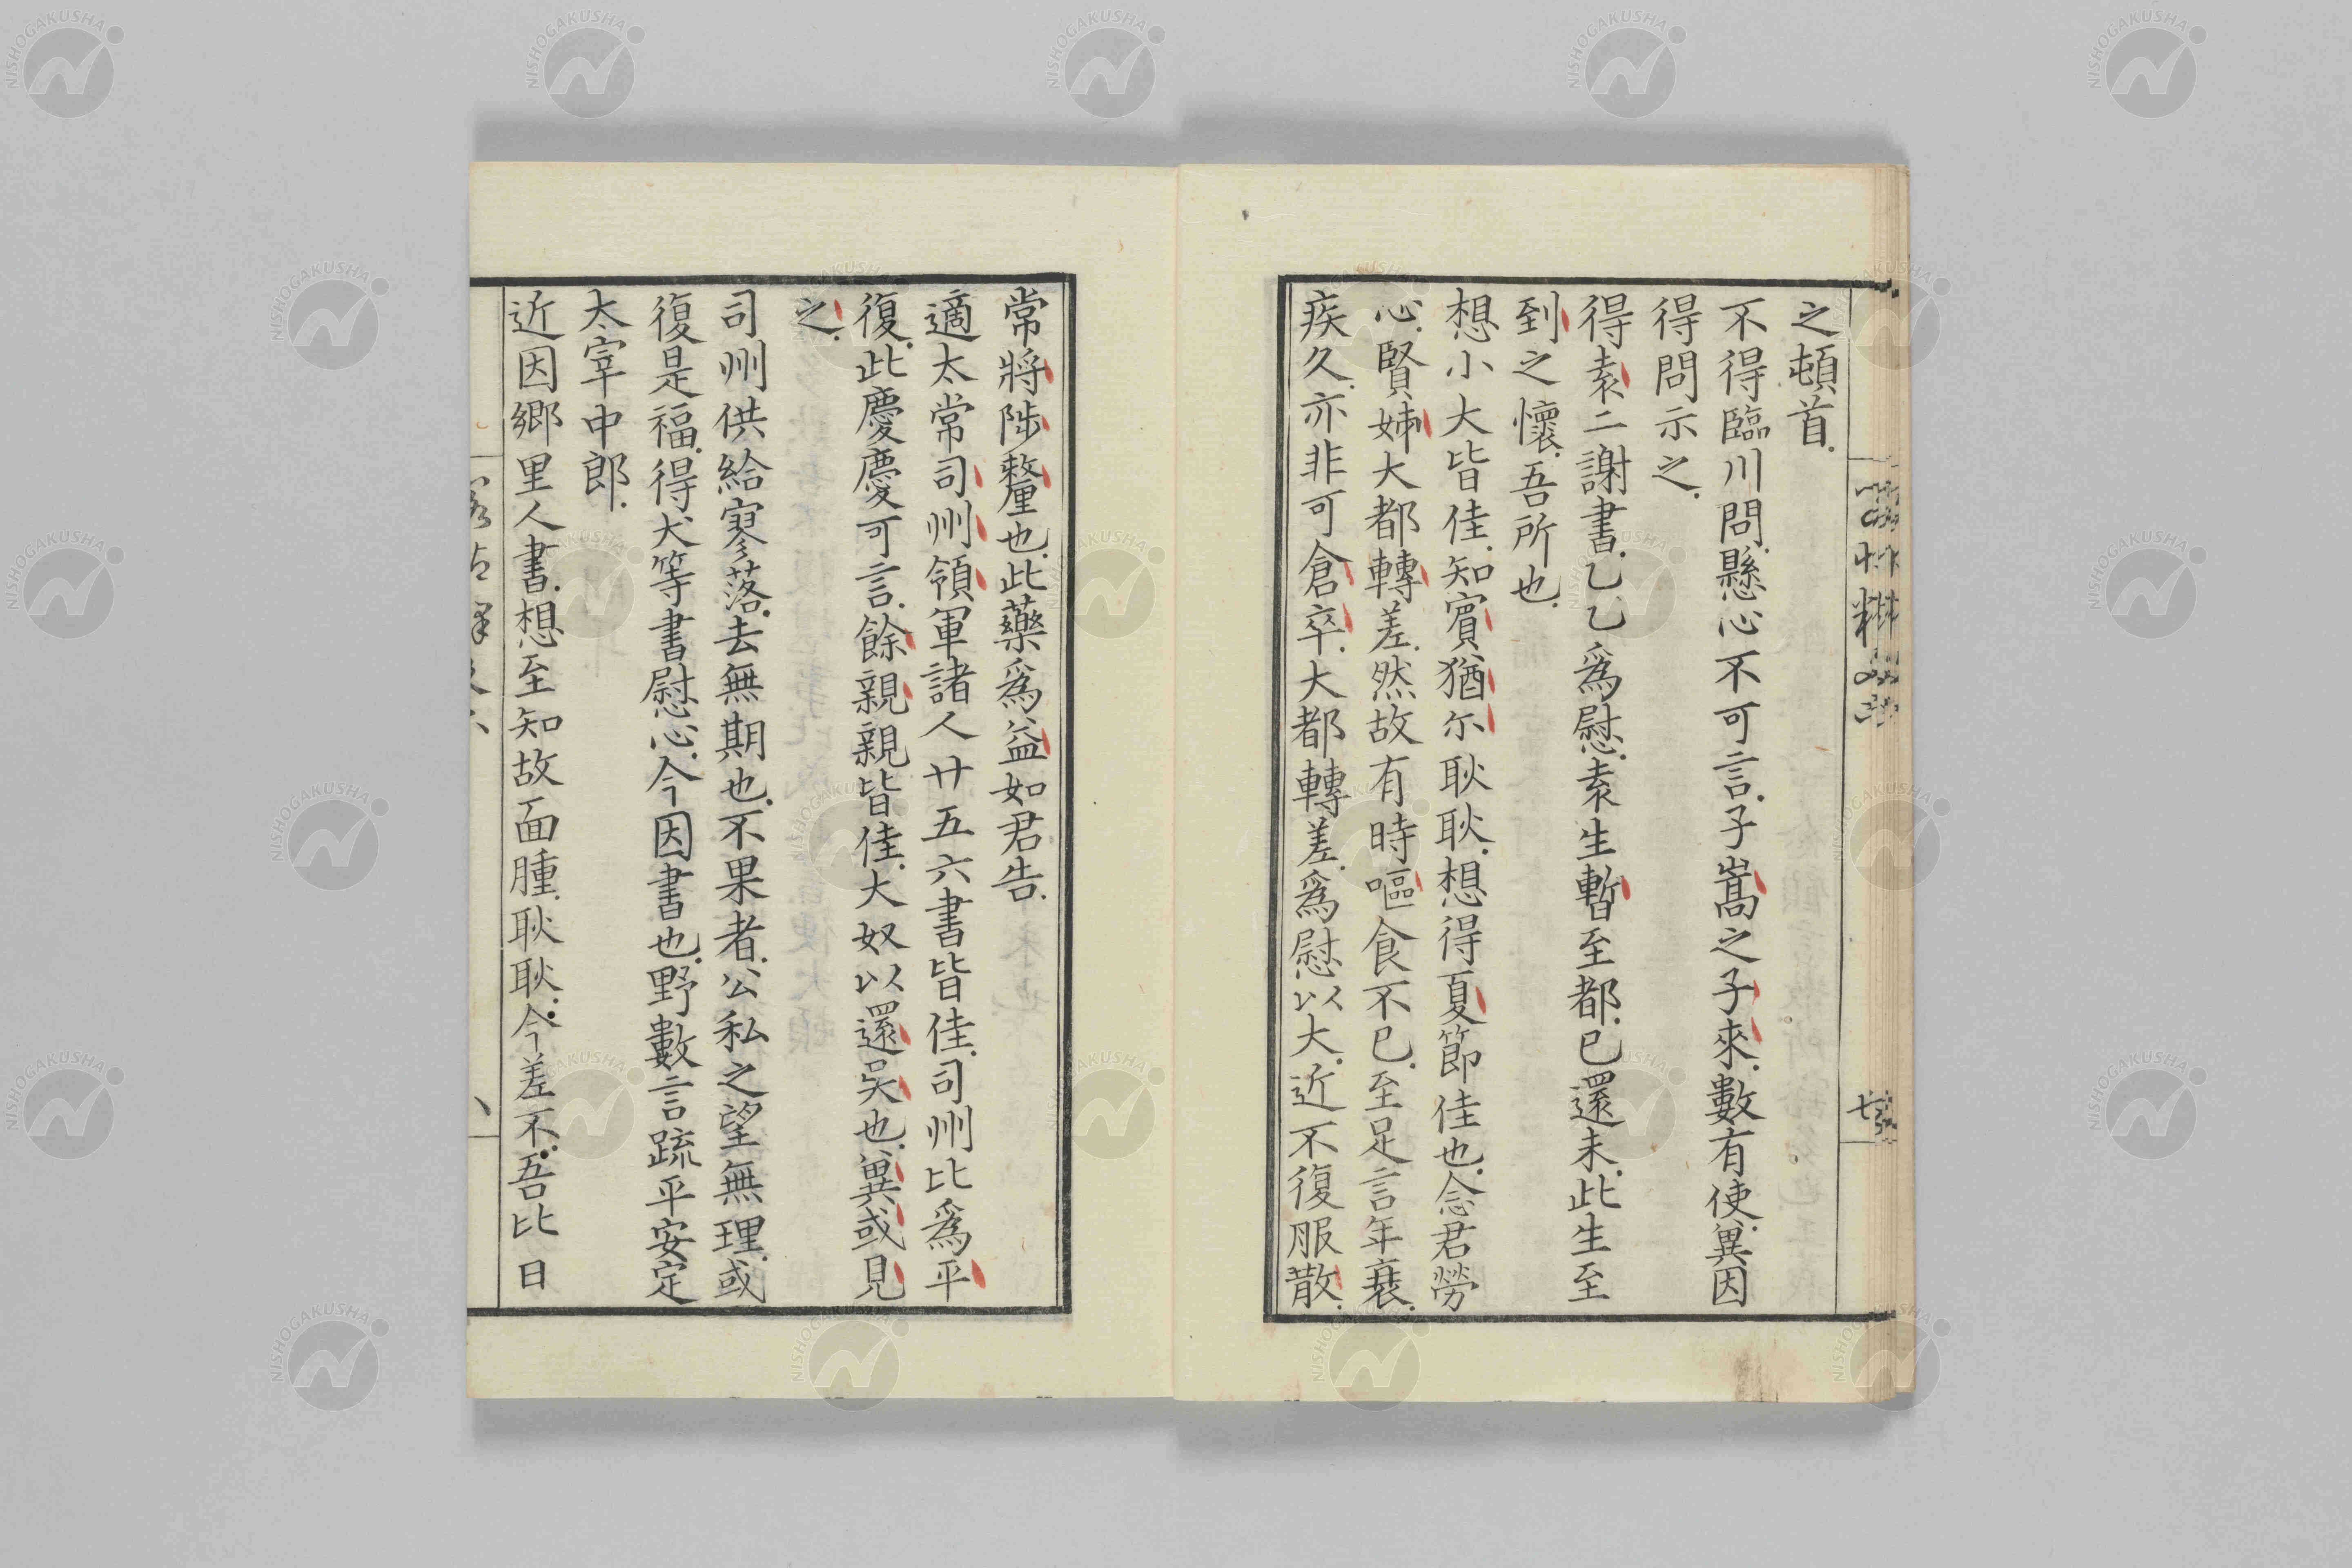 之頓首.
不得臨川問.懸心不可言.子嵩之子來.數有使.異因
得問示之.
得袁二謝書.乙乙爲慰.袁生暫至都.已還未.此生至
到之懷.吾所也.
想小大皆佳.知賓猶尓耿耿.想得夏節佳也.念君勞
心.賢姊大都轉差.然故有時嘔食不已.至足言年衰.
疾久.亦非可倉卒.大都轉差.爲慰以大.近不復服散.
七
常將陟釐也.此藥爲益如君告.
適太常司州領軍諸人廿五六書皆佳.司州比爲平
復.此慶慶可言.餘親親皆佳.大奴以還吳也.異或見
之.
司州供給寥落.去無期也.不果者.公私之望無理.或
復是福.得犬等書慰心.今因書也.野數言疏平安定
太宰中郎.
近因鄉里人書.想至知故面腫.耿耿.今差不.吾比日
NISHOGAKUSHA